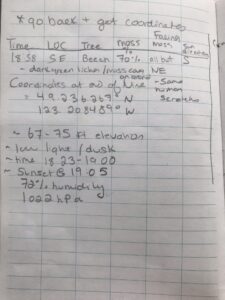 * go back + get coordinates
Time LOC Tree moss Facing moss Sun direction
18:58 SE Beech To 70% all but S
- dark green lichen/moss NE
Coordinates at end of
- Same human scratches
= 49.236269° N
123.208489° W
~ 67-75 ft elevation
~ low light / dusk
~ time 18:23-19:00
~ Sunset @ 19:05
72% humidity
1022 hPa